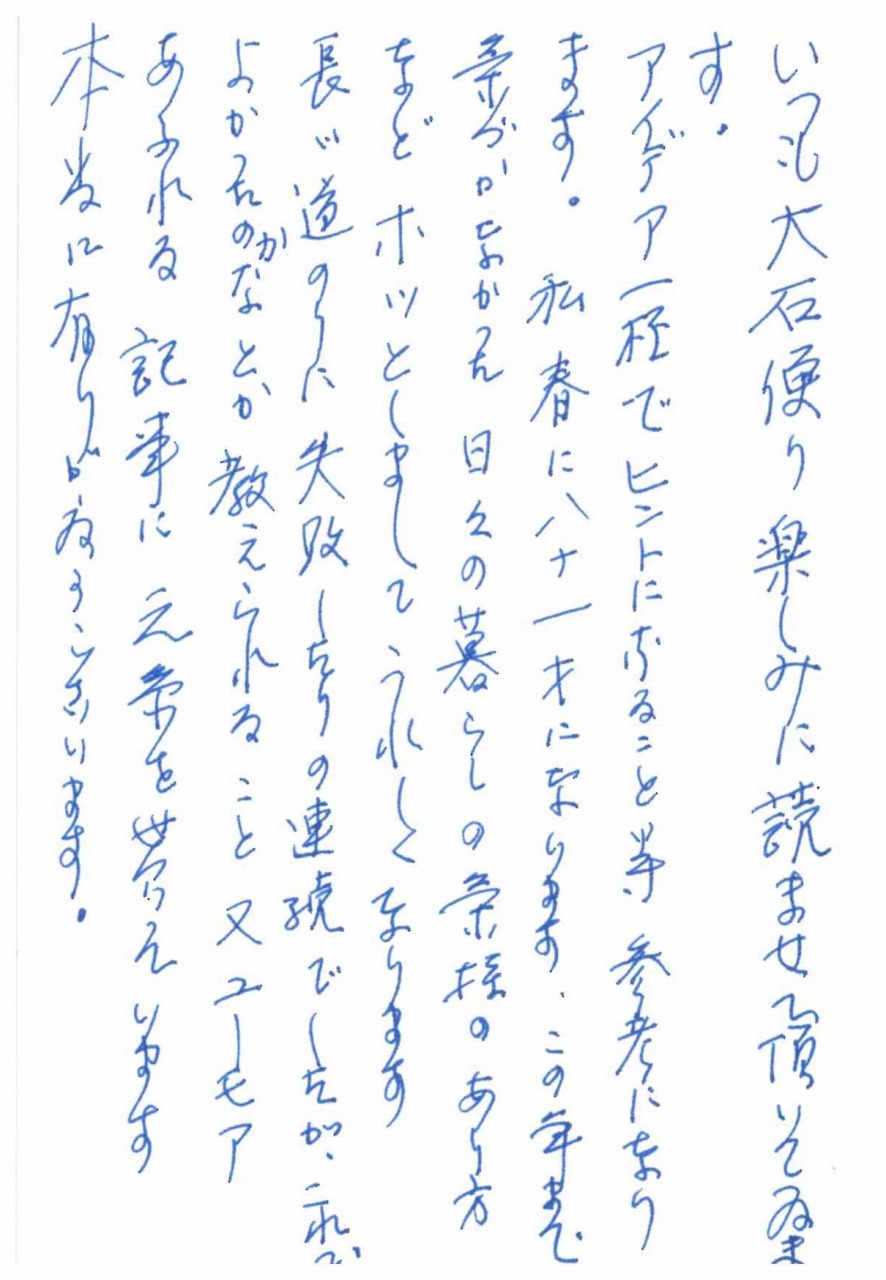 いつも大石便り楽しみに読ませて頂いてゐま
す。
アイデア一杯でヒントになること等 参考になり
ます。 私 春に八十一才になります、この年まで
気づかなかった 日々の暮らしの気持のあり方
など ホッとしましてうれしくなります
長い道のりに 失敗したりの連続でしたが、これで
よかったのかなとか 教えられること 又ユーモア
あふれる 記事に 元気を貰っています
本当に有りがたうございます。